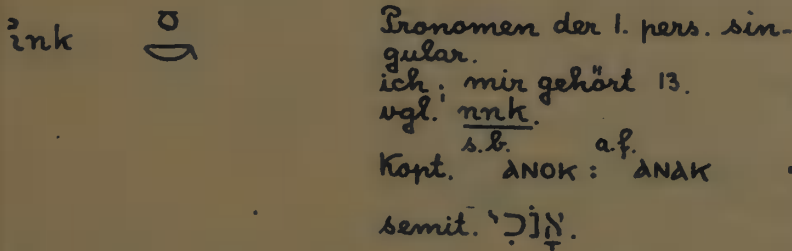 ỉnk 𓏌𓎡 Pronomen der 1. pers. sin-
gular.
ich; mir gehört 13.
vgl. nnk.
s.b. a.f.
Kopt. ⲁⲛⲟⲕ : ⲁⲛⲁⲕ
semit. אָנֹכִי.